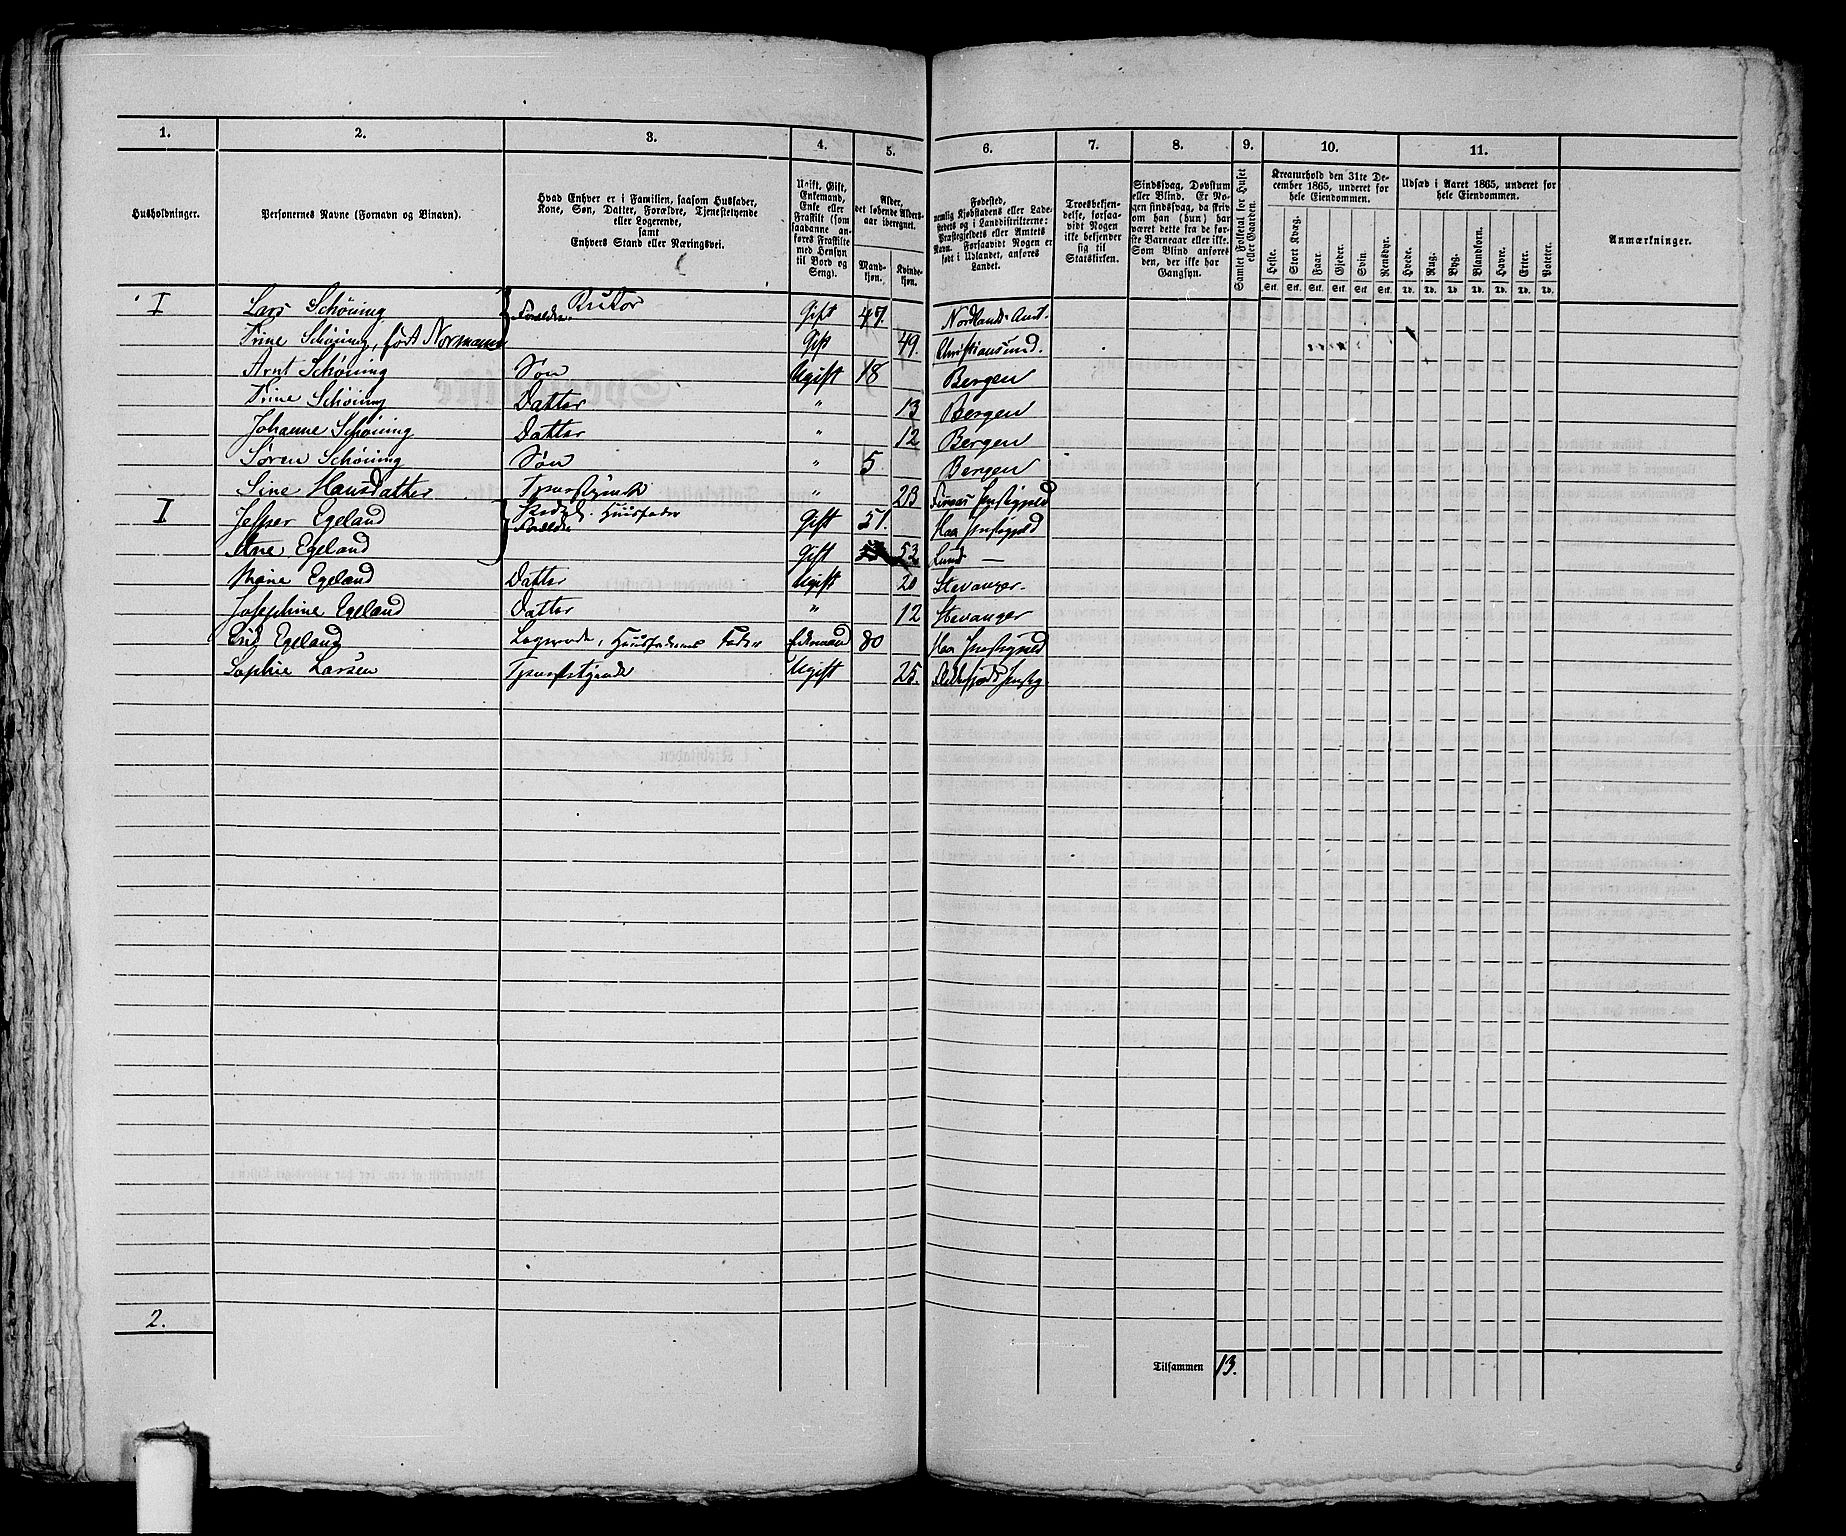 1. 2. 3. 4. 5. 6. 7. 8. 9. 10. 11.
Husholdninger.
Personernes Navne (Fornavn og Binavn).
Hvad Enhver er i Familien, saasom Husfader,
Kone, Søn, Datter, Forældre, Tjenestetyende
eller Logerende,
samt
Enhvers Stand eller Næringsvei.
Ugift, Gift,
Enkemand,
Enke eller
Fraskilt (som
saadanne an-
føres Fraskilte
med Hensyn
til Bord og
Seng).
Alder,
det løbende Alders-
aar iberegnet.
Mand-
kjøn.
Kvinde-
kjøn.
Fødested,
nemlig Kjøbstadens eller Lade-
stedets og i Landdistrikterne:
Præstegjeldets eller Amtets
Navn. Forsaavidt Nogen er
født i Udlandet, anføres
Landet.
Troesbekjen-
delse, forsaa-
vidt Nogen
ikke bekjender
sig til
Statskirken.
Sindssvag, Døvstum
eller Blind. Er No-
gen sindssvag, da skriv
om han (hun) har
været dette fra de før-
ste Barneaar eller ikke.
Som Blind anføres
den, der ikke har
Gangsyn.
Samlet Folketal for Huset
eller Gaarden.
Kreaturhold den 31te De-
cember 1865, underet for
hele Eiendommen.
Heste. Stort Kvæg. Faar. Gjeder. Svin. Rensdyr.
Stk. Stk. Stk. Stk. Stk. Stk.
Udsæd i Aaret 1865, underet for
hele Eiendommen.
Hvede. Rug. Byg. Blandkorn. Havre. Erter. Poteter.
Td. Td. Td. Td. Td. Td. Td.
Anmærkninger.
I Lars Schöning Forældre Gift 47. Nordlands Amt.
Trine Schöning, født Normann Gift 49. Christiansund.
Arnt Schöning Søn Ugift 18 Bergen
Trine Schöning Datter " 13 Bergen
Johanne Schöning Datter " 12 Bergen
Søren Schöning Søn " 5 Bergen
Sine Hansdatter " 23
I Jesper Egeland Huusfader Forældre Gift 51. Haa
Ane Egeland Gift 53 Lund —
Egeland Datter Ugift 20 Stavanger.
Josephine Egeland Datter " 12 Stavanger
Erik Egeland Logerende, Huusfaderens Fader Enkemand 80 Haa
Sophie Larsen Ugift 25.
2.
Tilsammen 13.